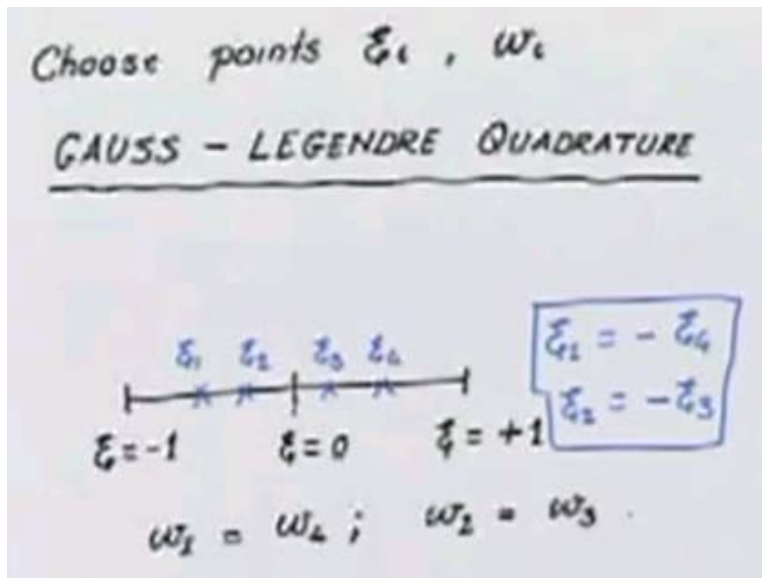 Choose points ξi , wi
GAUSS - LEGENDRE QUADRATURE
ξ1 ξ2 ξ3 ξ4
ξ1 = - ξ4
ξ2 = - ξ3
ξ = -1 ξ = 0 ξ = +1
w1 = w4 ; w2 = w3 .